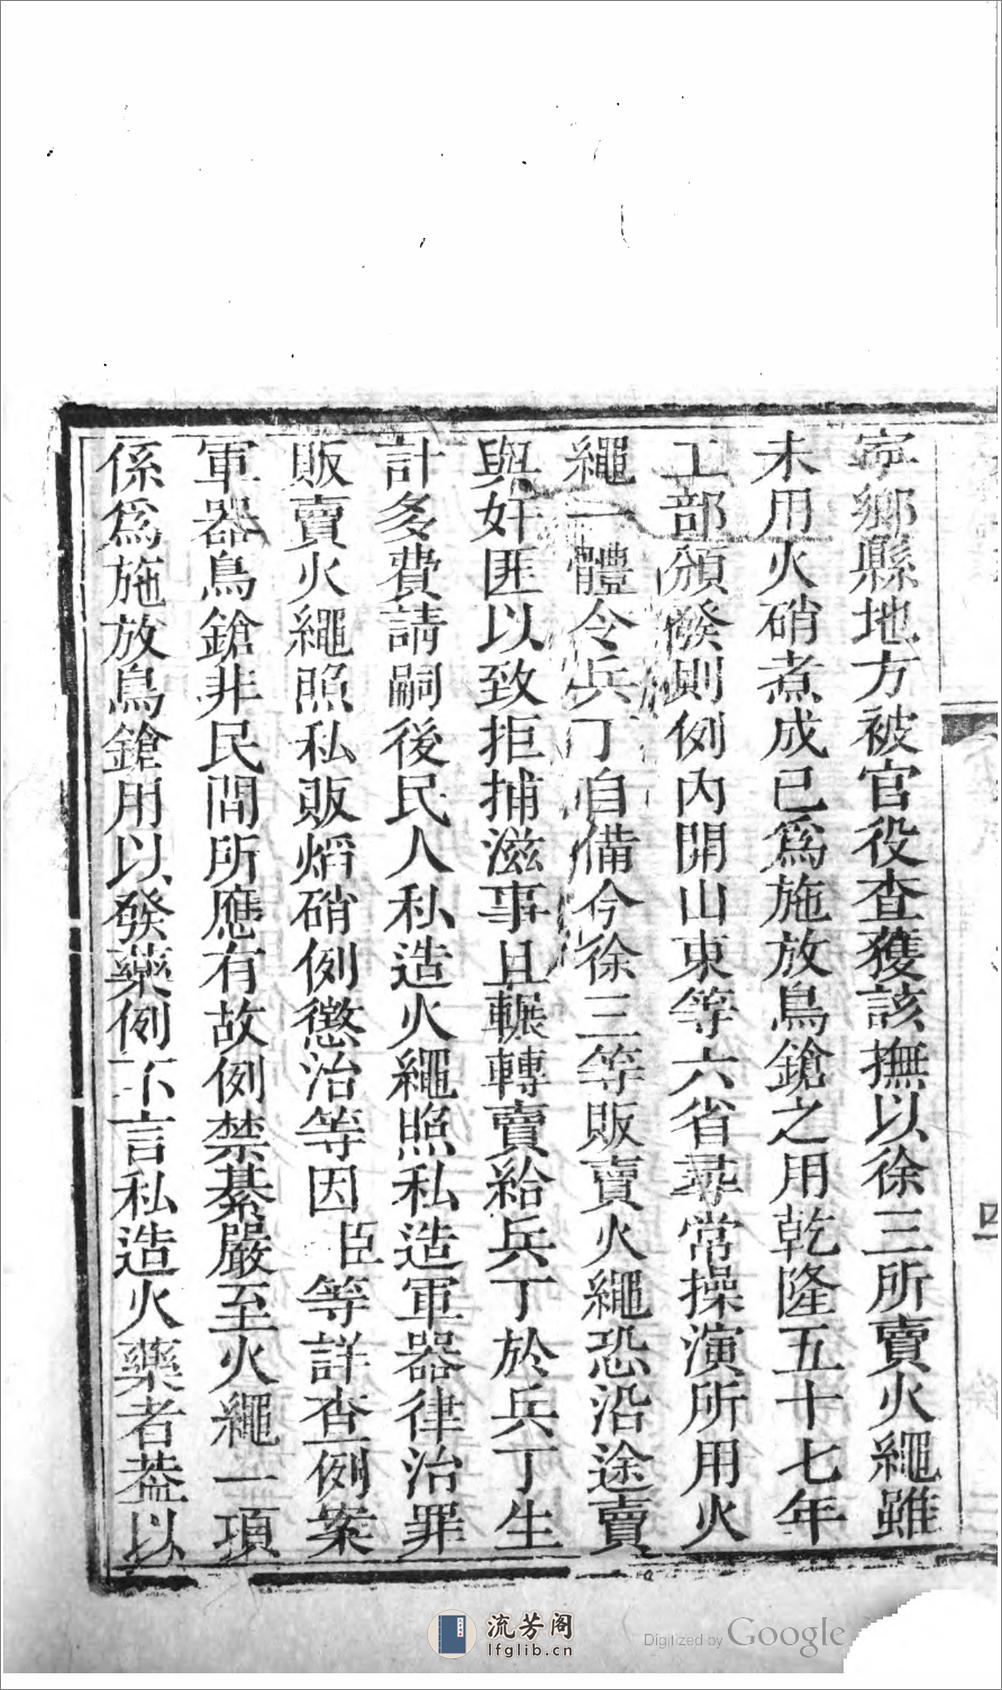 寧鄉縣地方被官役查獲該撫以徐三所賣火繩雖
未用火硝煮成已爲施放鳥鎗之用乾隆五十七年
工部頒發則例內開山東等六省尋常操演所用火
繩一體令兵丁自備今徐三等販賣火繩恐沿途賣
與奸匪以致拒捕滋事且輾轉賣給兵丁於兵丁生
計多費請嗣後民人私造火繩照私造軍器律治罪
販賣火繩照私販焇硝例懲治等因臣等詳查例案
軍器鳥鎗非民間所應有故例禁綦嚴至火繩一項
係爲施放鳥鎗用以發藥例不言私造火藥者葢以
四
流芳阁
lfglib.cn
Digitized by Google